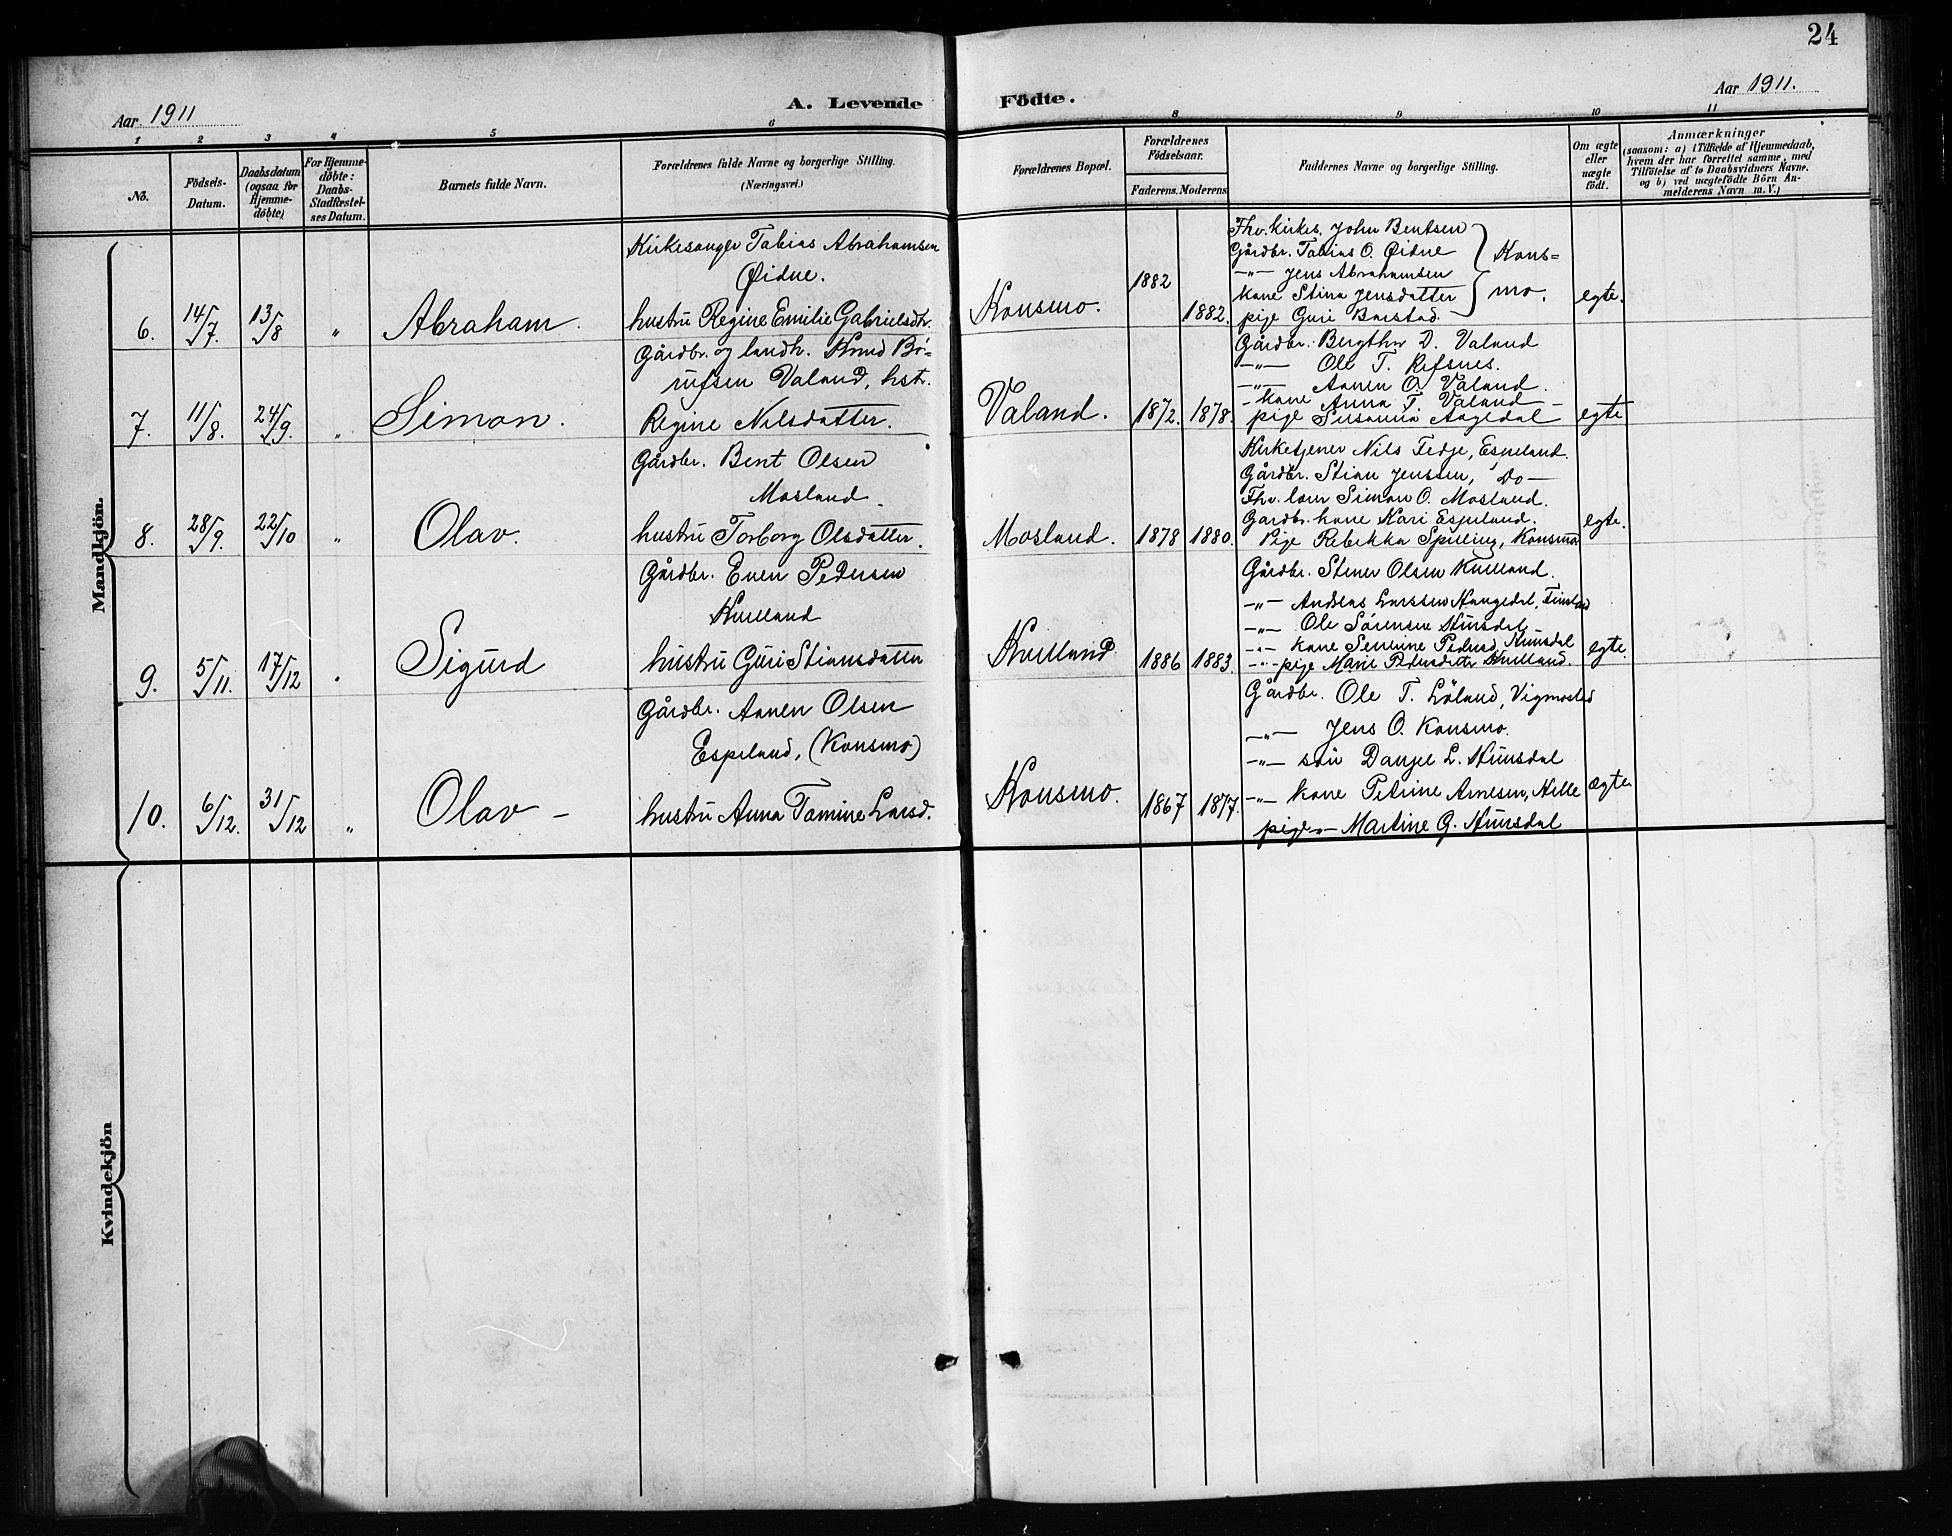 24
Aar 1911
A. Levende Födte.
Aar 1911.
1 2 3 4 5 6 8 9 10 11
No.
Födsels-Datum.
Daabsdatum (ogsaa for Hjemmedöbte)
For Hjemmedöbte: Daabs-Stadfæstelses Datum.
Barnets fulde Navn.
Forældrenes fulde Navne og borgerlige Stilling.
(Næringsvei.)
Forældrenes Bopæl.
Forældrenes Födselsaar.
Faderens. Moderens.
Faddernes Navne og borgerlige Stilling.
Om ægte eller uægte født.
Anmærkninger
(saasom: a) i Tilfælde af Hjemmedaab, hvem der har forrettet samme, med Tilföielse af to Daabsvidners Navne, og b) ved uægtefödte Börn Anmelderens Navn m. V.)
Mandkjön.
6. 14/7. 13/8 " Abraham.
Kirkesanger Tobias Abrahamsen
Øidne.
hustru Regine Emilie Gabrielsdtr.
Konsmo. 1882 1882.
Fhv. kirkes. John Bentsen
Gårdbr. Tobias O. Øidne
-"- Jens Abrahamsen
kone Stina Jensdatter
pige Guri Barstad.
Kons=
mo.
egte.
7. 11/8. 24/9. " Simon.
Gårdbr. og landh. Knud Bö=
rufsen Valand, hst.
Regine Nilsdatter.
Valand. 1872. 1878.
Gårdbr. Bergthor D. Valand
-"- Ole T. Refsnes.
-"- Aanen O. Valand.
- kone Anna T. Valand -
pige Susanna Aagedal
egte
8. 28/9. 22/10 " Olav.
Gårdbr. Bent Olsen
Mosland.
hustru Torborg Olsdatter.
Mosland. 1878 1880.
Kirketjener Nils Tedje, Espeland.
Gårdbr. Stian Jenssen, Do -
Fhv. lom Simon O. Mosland.
Gardbr. kone Kari Espeland.
Pige Rebekka Spilling, Konsmo
egte.
9. 5/11. 17/12 " Sigurd
Gårdbr. Even Pedersen
Kvelland
hustru Guri Stiansdatter
Kvelland 1886 1883.
Gårdbr. Stener Olsen Kvelland.
-"- Andreas Larssen Haugedal,
-"- Ole Sørensen Hunsdal
-"- kone Sentine Pedersd, Hunsdal
-"- pige Marie Pedersdatter Kvelland.
egte.
10. 6/12. 31/12 " Olav -
Gårdbr. Aanen Olsen
Espeland, (Konsmo)
hustru Anna Tomine Larsd.
Konsmo. 1867 1877.
Gårdbr. Ole T. Löland, Vigmostad
-"- Jens O. Konsmo.
-"- sön Danjel L. Hunsdal
-"- kone Petrine Arnesen, Helle
pige -"- Martine G. Hunsdal
ægte
Kvindekjön